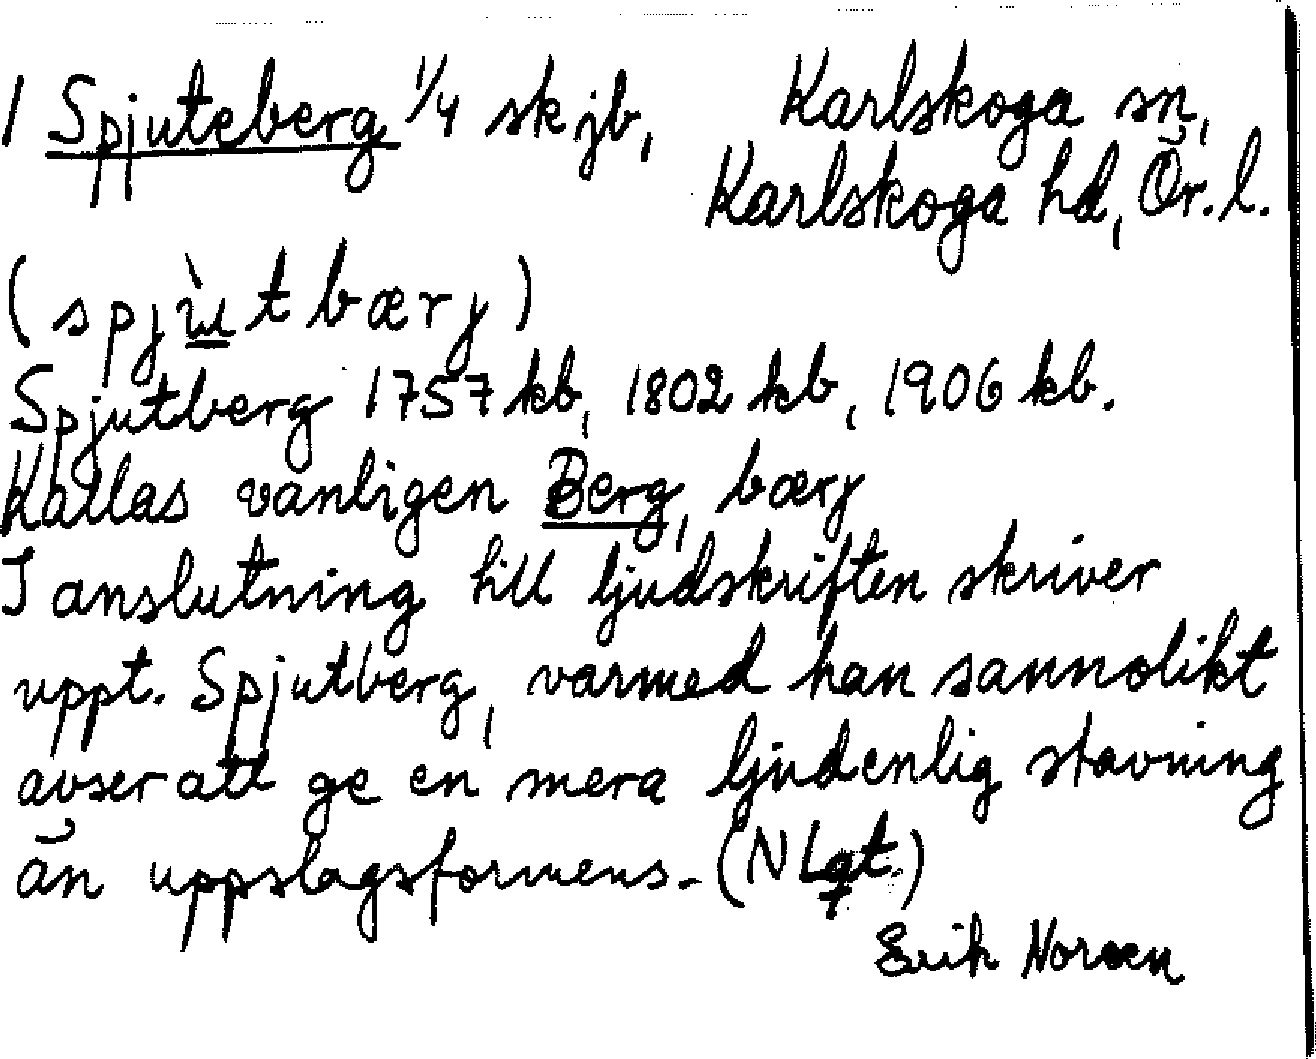 1 Spjuteberg 1/4 skjb, Karlskoga sn,
Karlskoga hd, Ör. l.
(spjùtbærj)
Spjutberg 1757 kb, 1802 kb, 1906 kb.
Kallas vanligen Berg, bærj
I anslutning till ljudskriften skriver
uppt. Spjutberg, varmed han sannolikt
avser att ge en mera ljudenlig stavning
än uppslagsformens. (N Lqt.)
Erik Noreen